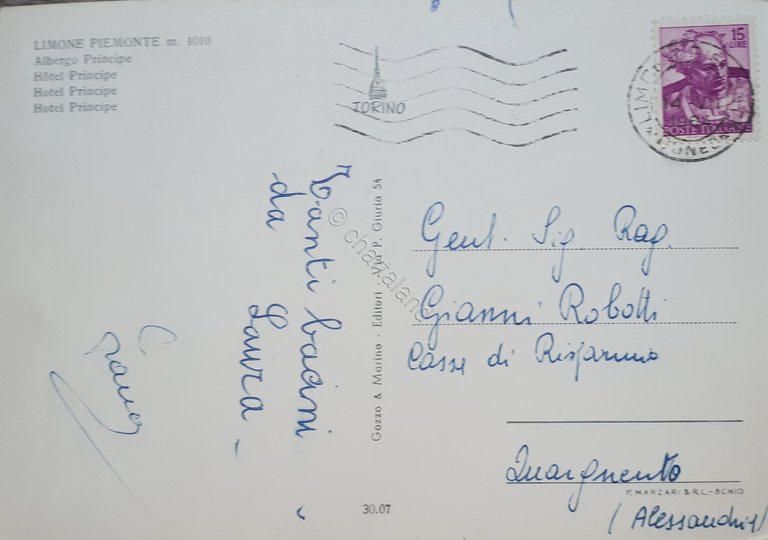 LIMONE PIEMONTE m. 1010
Albergo Principe
Hôtel Principe
Hotel Principe
Hotel Principe
TORINO
15
LIRE
POSTE ITALIANE
Tanti bacini
da Laura -
Gozzo & Marino - Editori - Via P. Giuria 54
© chartaland
Gent. Sig. Rag.
Gianni Robotti
Casse di Risparmio
Quargnento
(Alessandria)
P. MARZARI S.R.L. - SCHIO
30.07